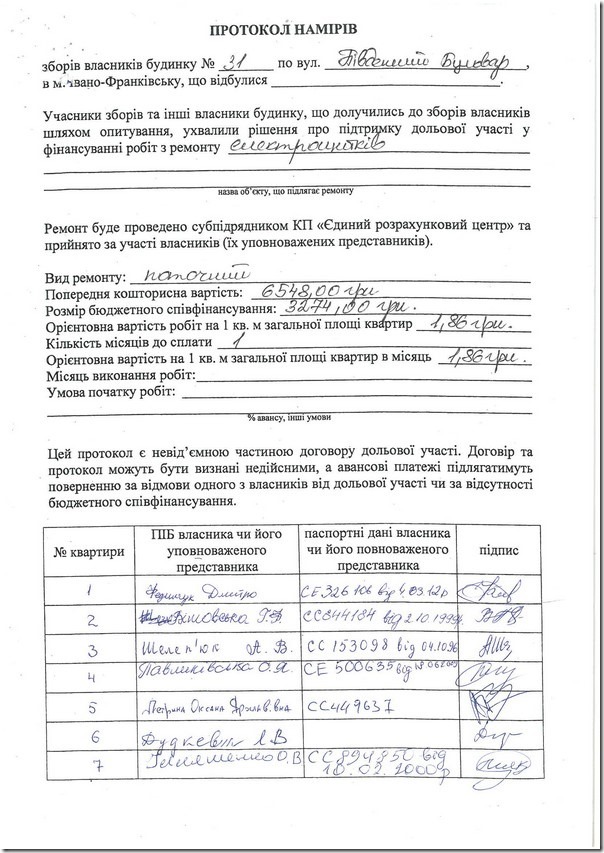 ПРОТОКОЛ НАМІРІВ
зборів власників будинку № 31 по вул. Південний Бульвар,
в м. Івано-Франківську, що відбулися
Учасники зборів та інші власники будинку, що долучились до зборів власників
шляхом опитування, ухвалили рішення про підтримку дольової участі у
фінансуванні робіт з ремонту електрощитків
назва об’єкту, що підлягає ремонту
Ремонт буде проведено субпідрядником КП «Єдиний розрахунковий центр» та
прийнято за участі власників (їх уповноважених представників).
Вид ремонту: поточний
Попередня кошторисна вартість: 6548,00 грн
Розмір бюджетного співфінансування: 3274,00 грн.
Орієнтовна вартість робіт на 1 кв. м загальної площі квартир 1,86 грн.
Кількість місяців до сплати 1
Орієнтовна вартість на 1 кв. м загальної площі квартир в місяць 1,86 грн.
Місяць виконання робіт:
Умова початку робіт:
% авансу, інші умови
Цей протокол є невід’ємною частиною договору дольової участі. Договір та
протокол можуть бути визнані недійсними, а авансові платежі підлягатимуть
поверненню за відмови одного з власників від дольової участі чи за відсутності
бюджетного співфінансування.
№ квартири ПІБ власника чи його уповноваженого представника паспортні дані власника чи його повноваженого представника підпис
1 Дмитро СЕ326106 від
2 СС844184 від 2.10.1999
3 Шелеп'юк А. В. СС 153098 від 04.1096
4 Павликівська О.Я. СЕ 500635 від
5 Петрина Оксана СС449637
6 Дудкевич
7 О.В СС894850 від 10.02.2000р